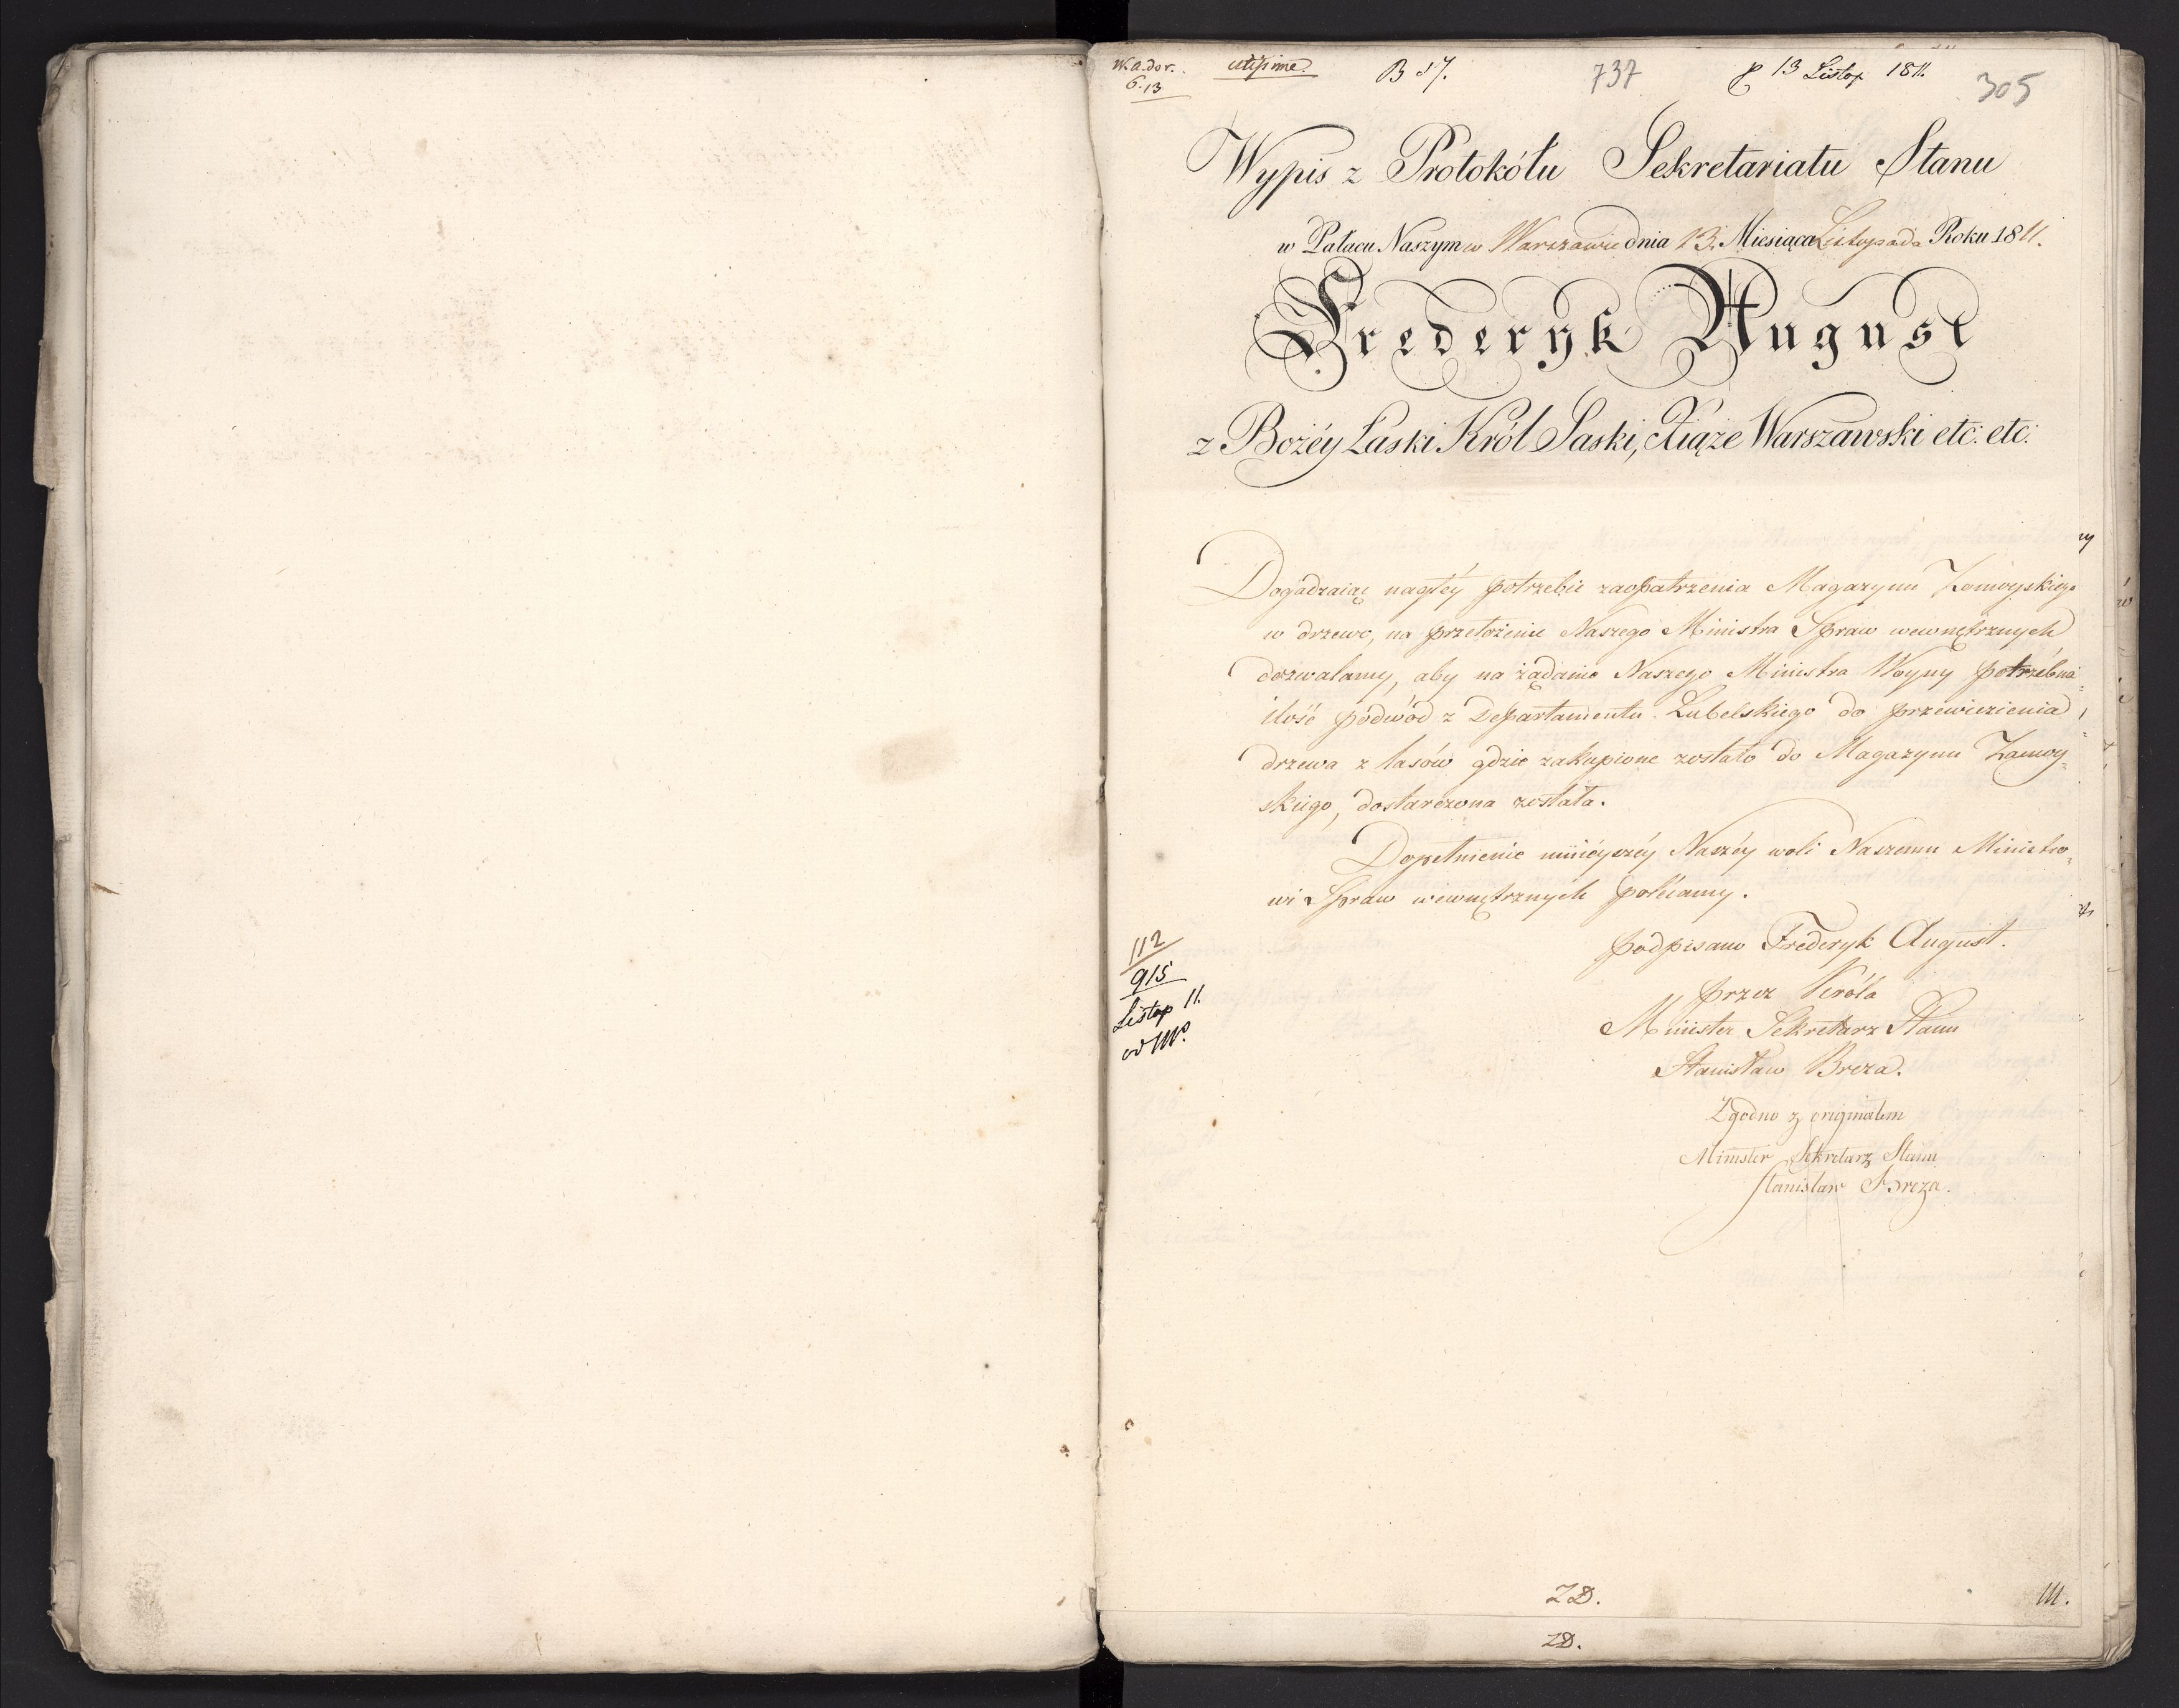 W. a. dor.
6.13
B 57.
737
13 Listop 1811.
305
Wypis z Protokółu Sekretariatu Stanu
w Pałacu Naszym w Warszawie dnia 13. Miesiąca Listopada Roku 1811.
Frederyk August
z Bożéy Łaski Król Saski, Xiąże Warszawski etc: etc:
Dogadzaiąc nagłéy potrzebie zaopatrzenia Magazynu Zamoyskiego
w drzewo, na przełożenie Naszego Ministra Spraw wewnętrznych
dozwalamy, aby na żądanie Naszego Ministra Woyny potrzebna
ilość podwód z Departamentu Lubelskiego do przewiezienia
drzewa z lasów gdzie zakupione zostało do Magazynu Zamoy=
skiego, dostarczona została.
Dopełnienie ninieyszéy Naszéy woli Naszemu Ministro=
wi Spraw wewnętrznych polecamy.
podpisano Frederyk August.
przez Króla
Minister Sekretarz Stanu
Stanisław Breza.
Zgodno z originałem
Minister Sekretarz Stanu
Stanisław Breza.
112
915
Listop 11.
od
ZD.
III.
ZD.